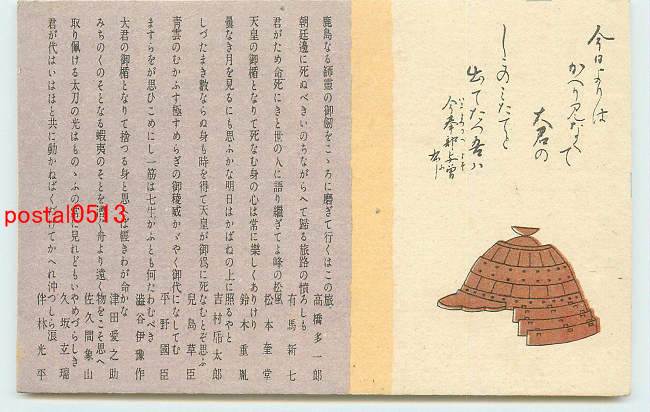 今日よりは
かへり見なくて
大君の
しこのみたてと
出でたつ吾は
今奉部与曽布
鹿島なる師靈の御劔をこゝろに磨ぎて行くはこの旅 高橋多一郎
朝廷邊に死ぬべきいのちながらへて歸る旅路の憤ろしも 有馬新七
君がため命死にきと世の人に語り繼ぎてよ峰の松風 松本奎堂
天皇の御楯となりて死なむ身の心は常に樂しくありけり 鈴木重胤
曇なき月を見るにも思ふかな明日はかばねの上に照るやと 吉村乕太郎
しづたまき數ならぬ身も時を得て天皇が御爲に死なむとぞ思ふ 兒島草臣
青雲のむかふす極すめらぎの御稜威かゞやく御代になしてむ 平野國臣
ますらをが思ひこめにし一筋は七生かふとも何たわむべき 澁谷伊豫作
大君の御楯となりて捨つる身と思へば輕きわが命かな 津田愛之助
みちのくのそとなる蝦夷のそとを漕ぐ舟より遠く物をこそ思へ 佐久間象山
取り佩ける太刀の光はものゝふの常に見れどもいやめづらしき 久坂立瑞
君が代はいはほと共に動かねばくだけてかへれ沖つしら浪 伴林光平
postal0513